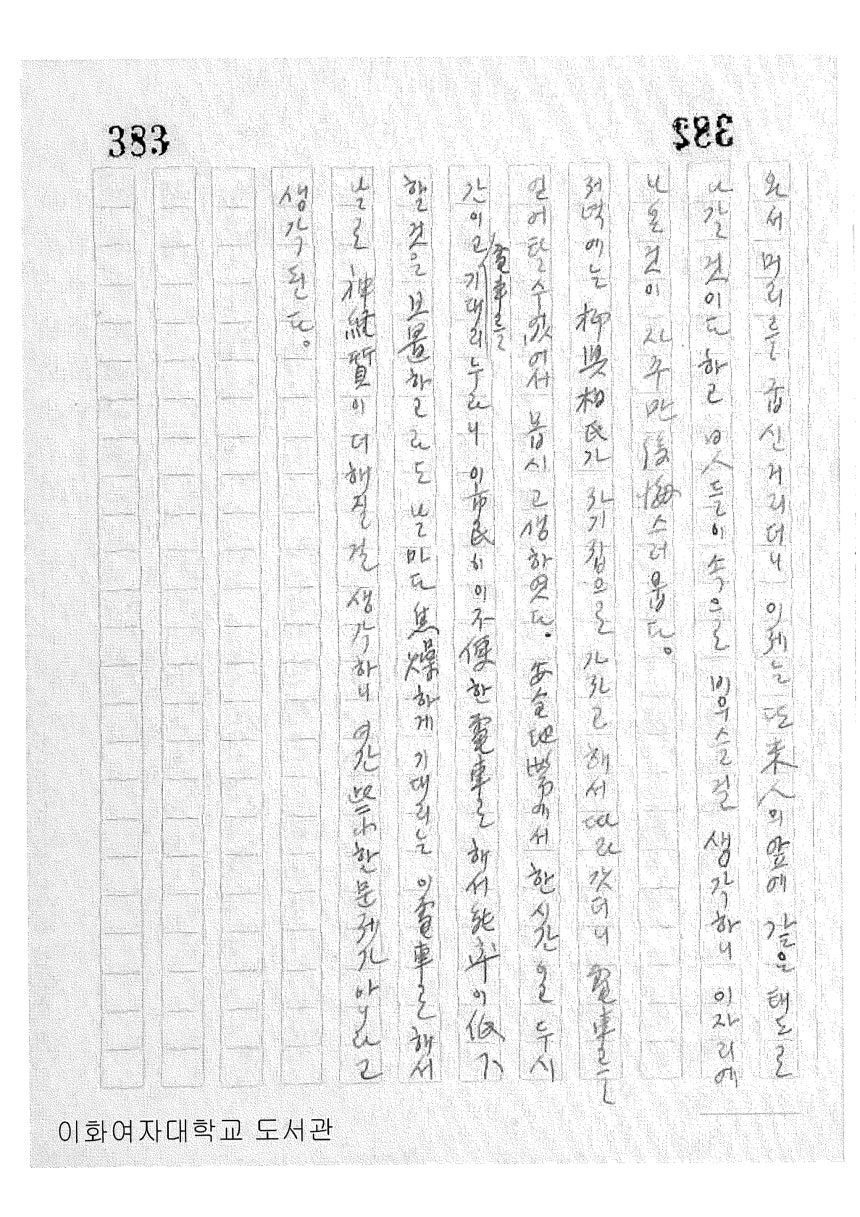 383
382
와서 머리를 굽신거리더니 이제는 또 未人의 앞에 같은 태도로
나갈 것이다 하고 몃들이 속으로 비우슬걸 생각하니 이자리에
나온것이 자주만 後悔스러웁다。
저녁에는 柳具相氏가 자기집으로 가자고 해서 따라갓더니 電車를
얻어탈수없어서 몹시 고생하엿다。安全地帶에서 한시간을 두시
간이고 電車를 기대리누라니 이 市民이 이 不便한 電車로 해서 能率이 低下
할것은 보 하고라도 날마다 焦燥하게 기대리는 이電車로 해서
날로 神經質이 더해질걸 생각하니 여간 한 문제가 아니라고
생각된다。
이화여자대학교 도서관